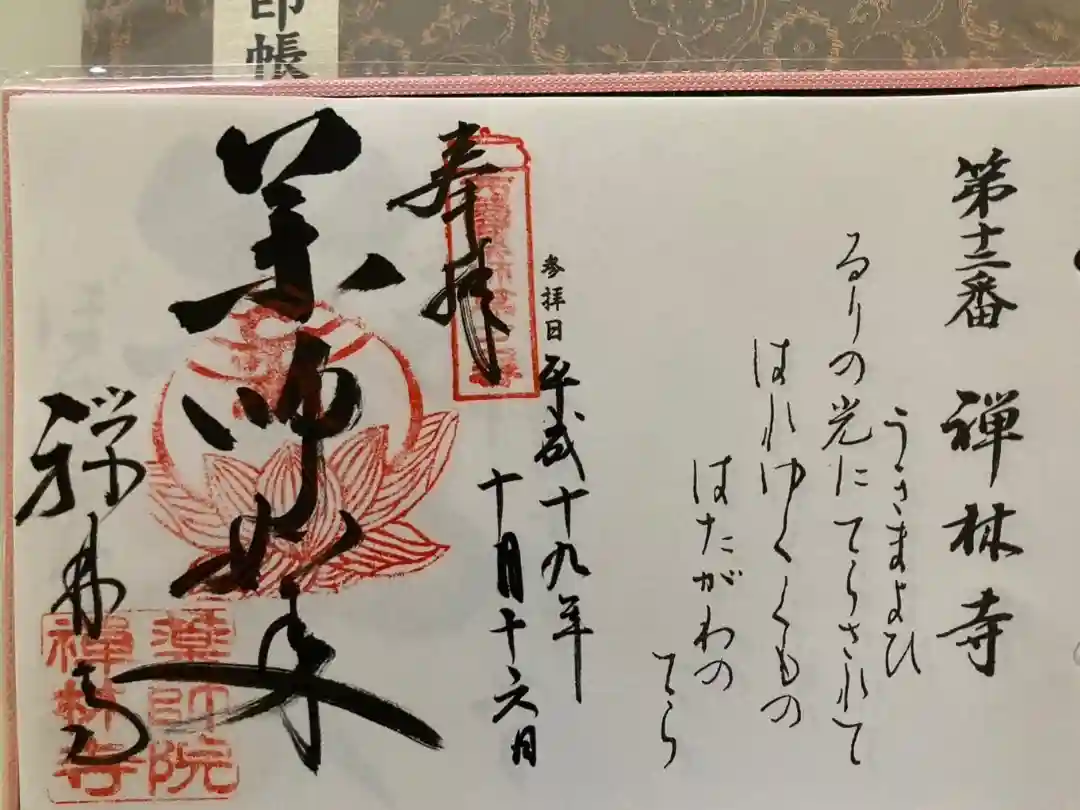 印帳
第十二番 禅林寺
うきまよひ
るりの光にてらされて
はれゆくくもの
はたがわの
てら
参拝日 平成十九年
十月十六日
奉拝
薬師如来
禅林寺
薬師院
禅林寺